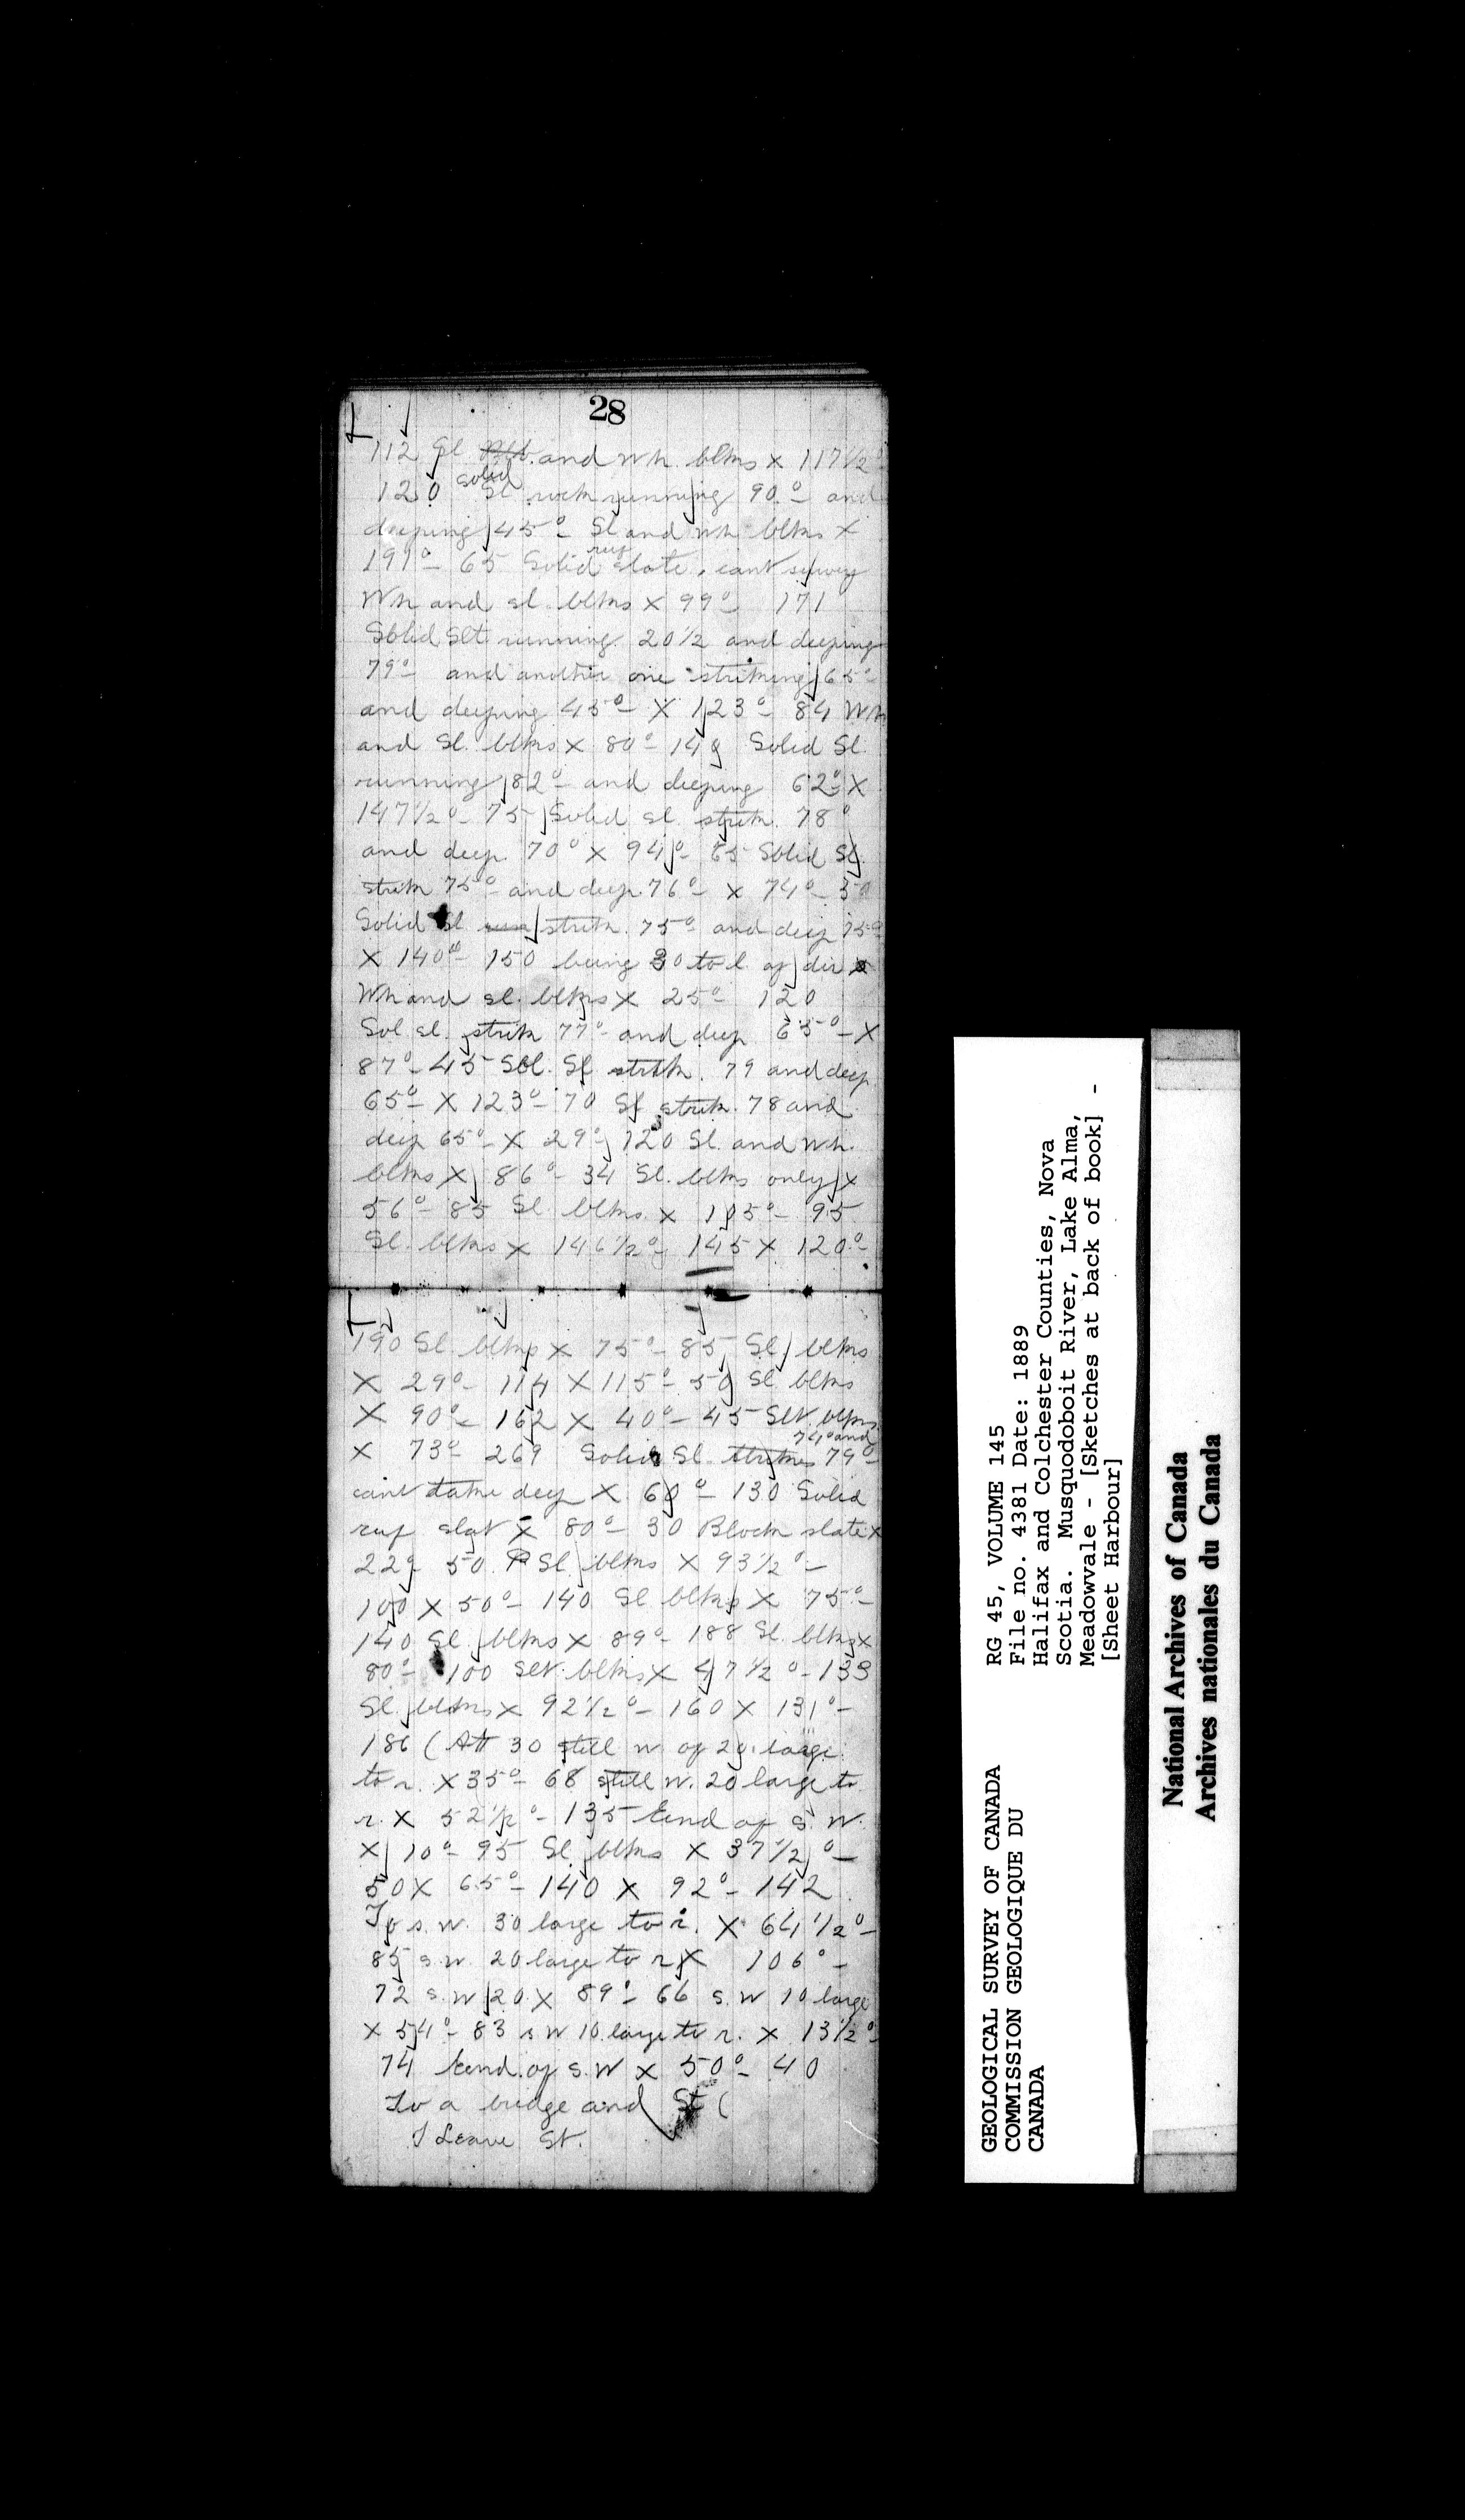 28
112 Sl and Wh. blks X 117 1/2
120 solid Sl rock running 90° and
deeping 45° - Sl and Wh blks X
191° - 65 Solid ruf slate. cant survey
Wh and sl. blks X 99° - 171
Solid Slt running 20 1/2 and deeping
79° - and another one striking 65° -
and deeping 45° - X 123° - 84 Wh
and Sl. blks X 80° - 140 Solid Sl.
running 82° - and deeping 62° - X
147 1/2° - 75 Solid sl. strik. 78°
and deep 70° X 94° - 65 Solid Sl.
strik 75° - and deep. 76° - X 74° - 50
Solid Sl strik. 75° and deep 75°
X 140° - 150 being 30 to l. of dir X
Wh and sl. blks X 25° - 120
Sol sl. strik 77° - and deep 65° - X
87° - 45 Sol. Sl strik. 79 and deep
65° - X 123° - 70 Sl strik. 78 and
deep 65° - X 29° - 120 Sl. and Wh.
blks X 86° - 34 Sl. blks only X
56° - 85 Sl blks. X 105° - 95
Sl. blks X 146 1/2° - 145 X 120° -
190 Sl blks X 75° - 85 Sl blks
X 29° - 114 X 115° - 50 Sl blks
X 90° - 162 X 40° - 45 Slt. blks
X 73° - 269 Solid Sl. strikes 74° and 79° -
cant take deep X 60° - 130 Solid
ruf slat X 80° - 30 Block slate X
22° - 50 Sl blks X 93 1/2° -
100 X 50° - 140 Sl blks X 75° -
140 Sl blks X 89° - 188 Sl. blks X
80° - 100 Slt. blks X 47 1/2° - 133
Sl blks X 92 1/2° - 160 X 131° -
186 (Att 30 still w. of 20 large
to r. X 35° - 68 still w. 20 large to
r. X 52 1/2° - 135 End of S. W.
X 10° - 95 Sl blks X 37 1/2° -
50 X 65° - 140 X 92° - 142
To s. w. 30 large to r. X 64 1/2° -
85 s.w. 20 large to r X 106° -
72 s.w 20 X 89° - 66 s.w 10 large
X 54° - 83 s w 10 large to r. X 13 1/2° -
74 End of S. W X 50° - 40
To a bridge and St (
I Leave St.
GEOLOGICAL SURVEY OF CANADA
COMMISSION GEOLOGIQUE DU
CANADA
RG 45, VOLUME 145
File no. 4381 Date: 1889
Halifax and Colchester Counties, Nova
Scotia. Musquodoboit River, Lake Alma,
Meadowvale - [Sketches at back of book] -
[Sheet Harbour]
National Archives of Canada
Archives nationales du Canada